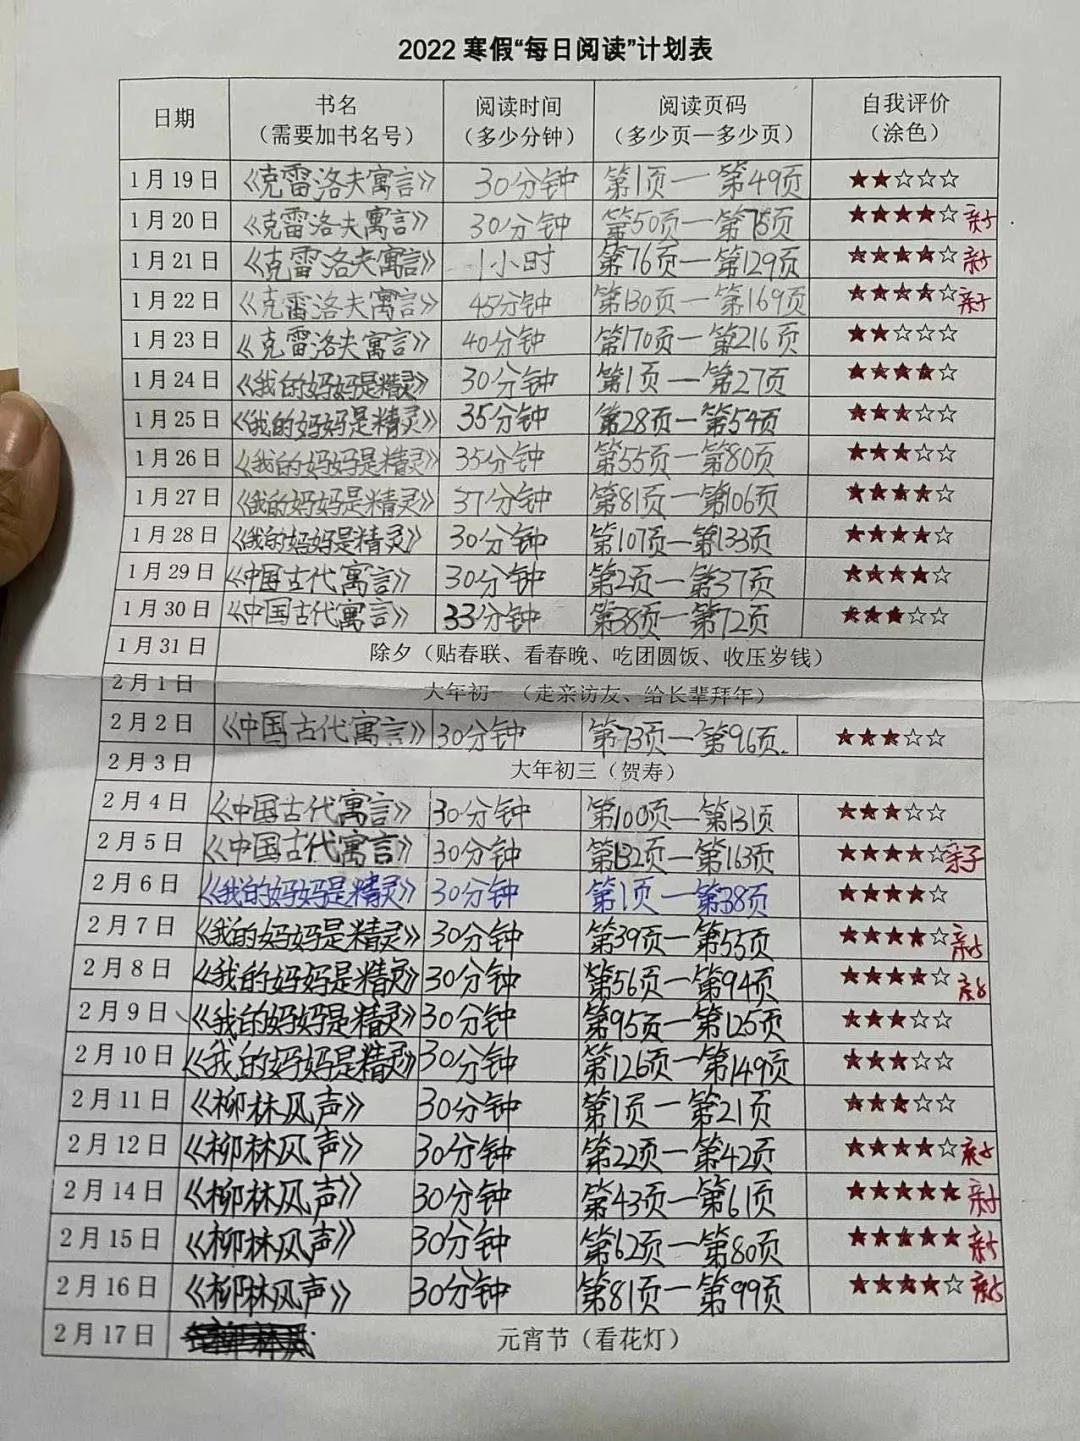 2022寒假“每日阅读”计划表
日期 书名（需要加书名号） 阅读时间（多少分钟） 阅读页码（多少页—多少页） 自我评价（涂色）
1月19日 《克雷洛夫寓言》 30分钟 第1页—第49页 ★★☆☆☆
1月20日 《克雷洛夫寓言》 30分钟 第50页—第75页 ★★★★☆ 亲子
1月21日 《克雷洛夫寓言》 1小时 第76页—第129页 ★★★★☆ 亲子
1月22日 《克雷洛夫寓言》 45分钟 第130页—第169页 ★★★★☆ 亲子
1月23日 《克雷洛夫寓言》 40分钟 第170页—第216页 ★★☆☆☆
1月24日 《我的妈妈是精灵》 30分钟 第1页—第27页 ★★★★☆
1月25日 《我的妈妈是精灵》 35分钟 第28页—第54页 ★★★☆☆
1月26日 《我的妈妈是精灵》 35分钟 第55页—第80页 ★★★☆☆
1月27日 《我的妈妈是精灵》 37分钟 第81页—第106页 ★★★★☆
1月28日 《我的妈妈是精灵》 30分钟 第107页—第133页 ★★★★☆
1月29日 《中国古代寓言》 30分钟 第2页—第37页 ★★★★☆
1月30日 《中国古代寓言》 33分钟 第38页—第72页 ★★★☆☆
1月31日 除夕（贴春联、看春晚、吃团圆饭、收压岁钱）
2月1日 大年初一（走亲访友、给长辈拜年）
2月2日 《中国古代寓言》 30分钟 第73页—第96页 ★★★☆☆
2月3日 大年初三（贺寿）
2月4日 《中国古代寓言》 30分钟 第100页—第131页 ★★★☆☆
2月5日 《中国古代寓言》 30分钟 第132页—第163页 ★★★★☆ 亲子
2月6日 《我的妈妈是精灵》 30分钟 第1页—第38页 ★★★★☆
2月7日 《我的妈妈是精灵》 30分钟 第39页—第55页 ★★★★☆ 亲子
2月8日 《我的妈妈是精灵》 30分钟 第56页—第94页 ★★★★☆ 亲子
2月9日 《我的妈妈是精灵》 30分钟 第95页—第125页 ★★★☆☆
2月10日 《我的妈妈是精灵》 30分钟 第126页—第149页 ★★★☆☆
2月11日 《柳林风声》 30分钟 第1页—第21页 ★★★☆☆
2月12日 《柳林风声》 30分钟 第22页—第42页 ★★★★☆ 亲子
2月14日 《柳林风声》 30分钟 第43页—第61页 ★★★★★ 亲子
2月15日 《柳林风声》 30分钟 第62页—第80页 ★★★★★ 亲子
2月16日 《柳林风声》 30分钟 第81页—第99页 ★★★★☆ 亲子
2月17日 元宵节（看花灯）